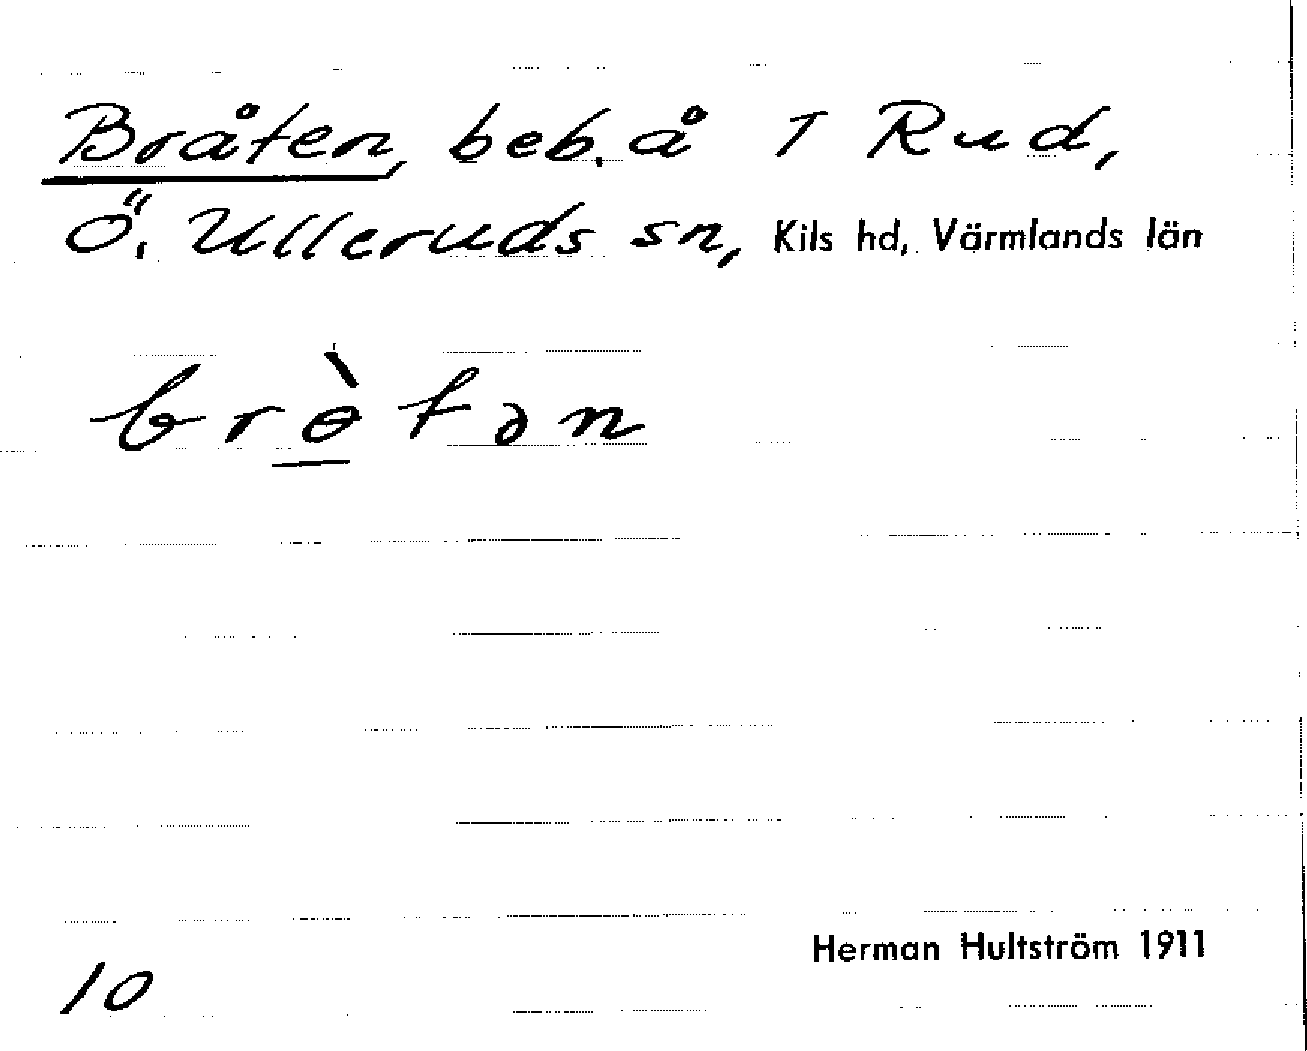 Bråten, beb. å 1 Rud,
Ö. Ulleruds sn, Kils hd, Värmlands län
brɵ̀tən
Herman Hultström 1911
10